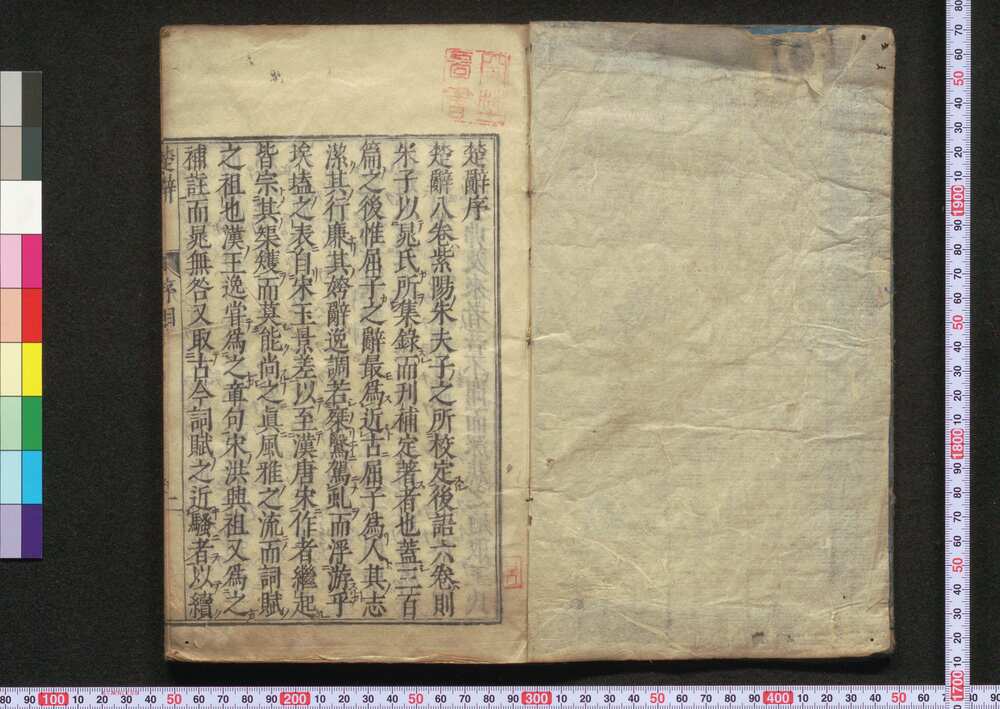 楚辭序
楚辭八卷紫陽朱夫子之所校定後語六卷則
朱子以晁氏所集錄而刊補定著者也蓋三百
篇之後惟屈子之辭最爲近古屈子爲人其志
潔其行廉其姱辭逸調若乘鷖駕虬而浮游乎
埃壒之表自宋玉景差以至漢唐宋作者繼起
皆宗其榘矱而莫能尚之眞風雅之流而詞賦
之祖也漢王逸嘗爲之章句宋洪興祖又爲之
補註而晁無咎又取古今詞賦之近騷者以續
楚辭 序目 一